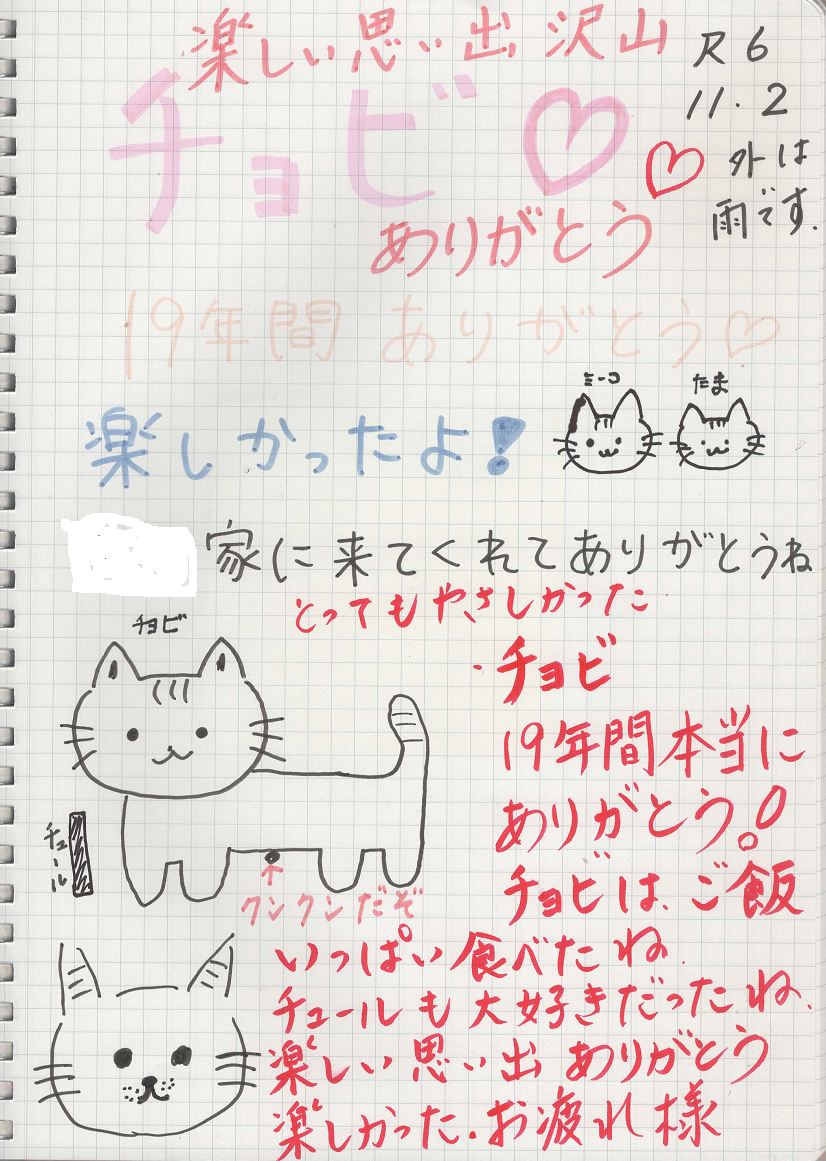 楽しい思い出沢山
R6
11.2
外は
雨です.
チョビ♡
♡
ありがとう
19年間 ありがとう♡
ミーコ
たま
楽しかったよ!
家に来てくれてありがとうね
とってもやさしかった
チョビ
・チョビ
19年間本当に
ありがとう!
チュール
チョビは、ご飯
↑
クンクンだぞ
いっぱい食べたね
チュールも大好きだったね、
楽しい思い出ありがとう
楽しかった.お疲れ様